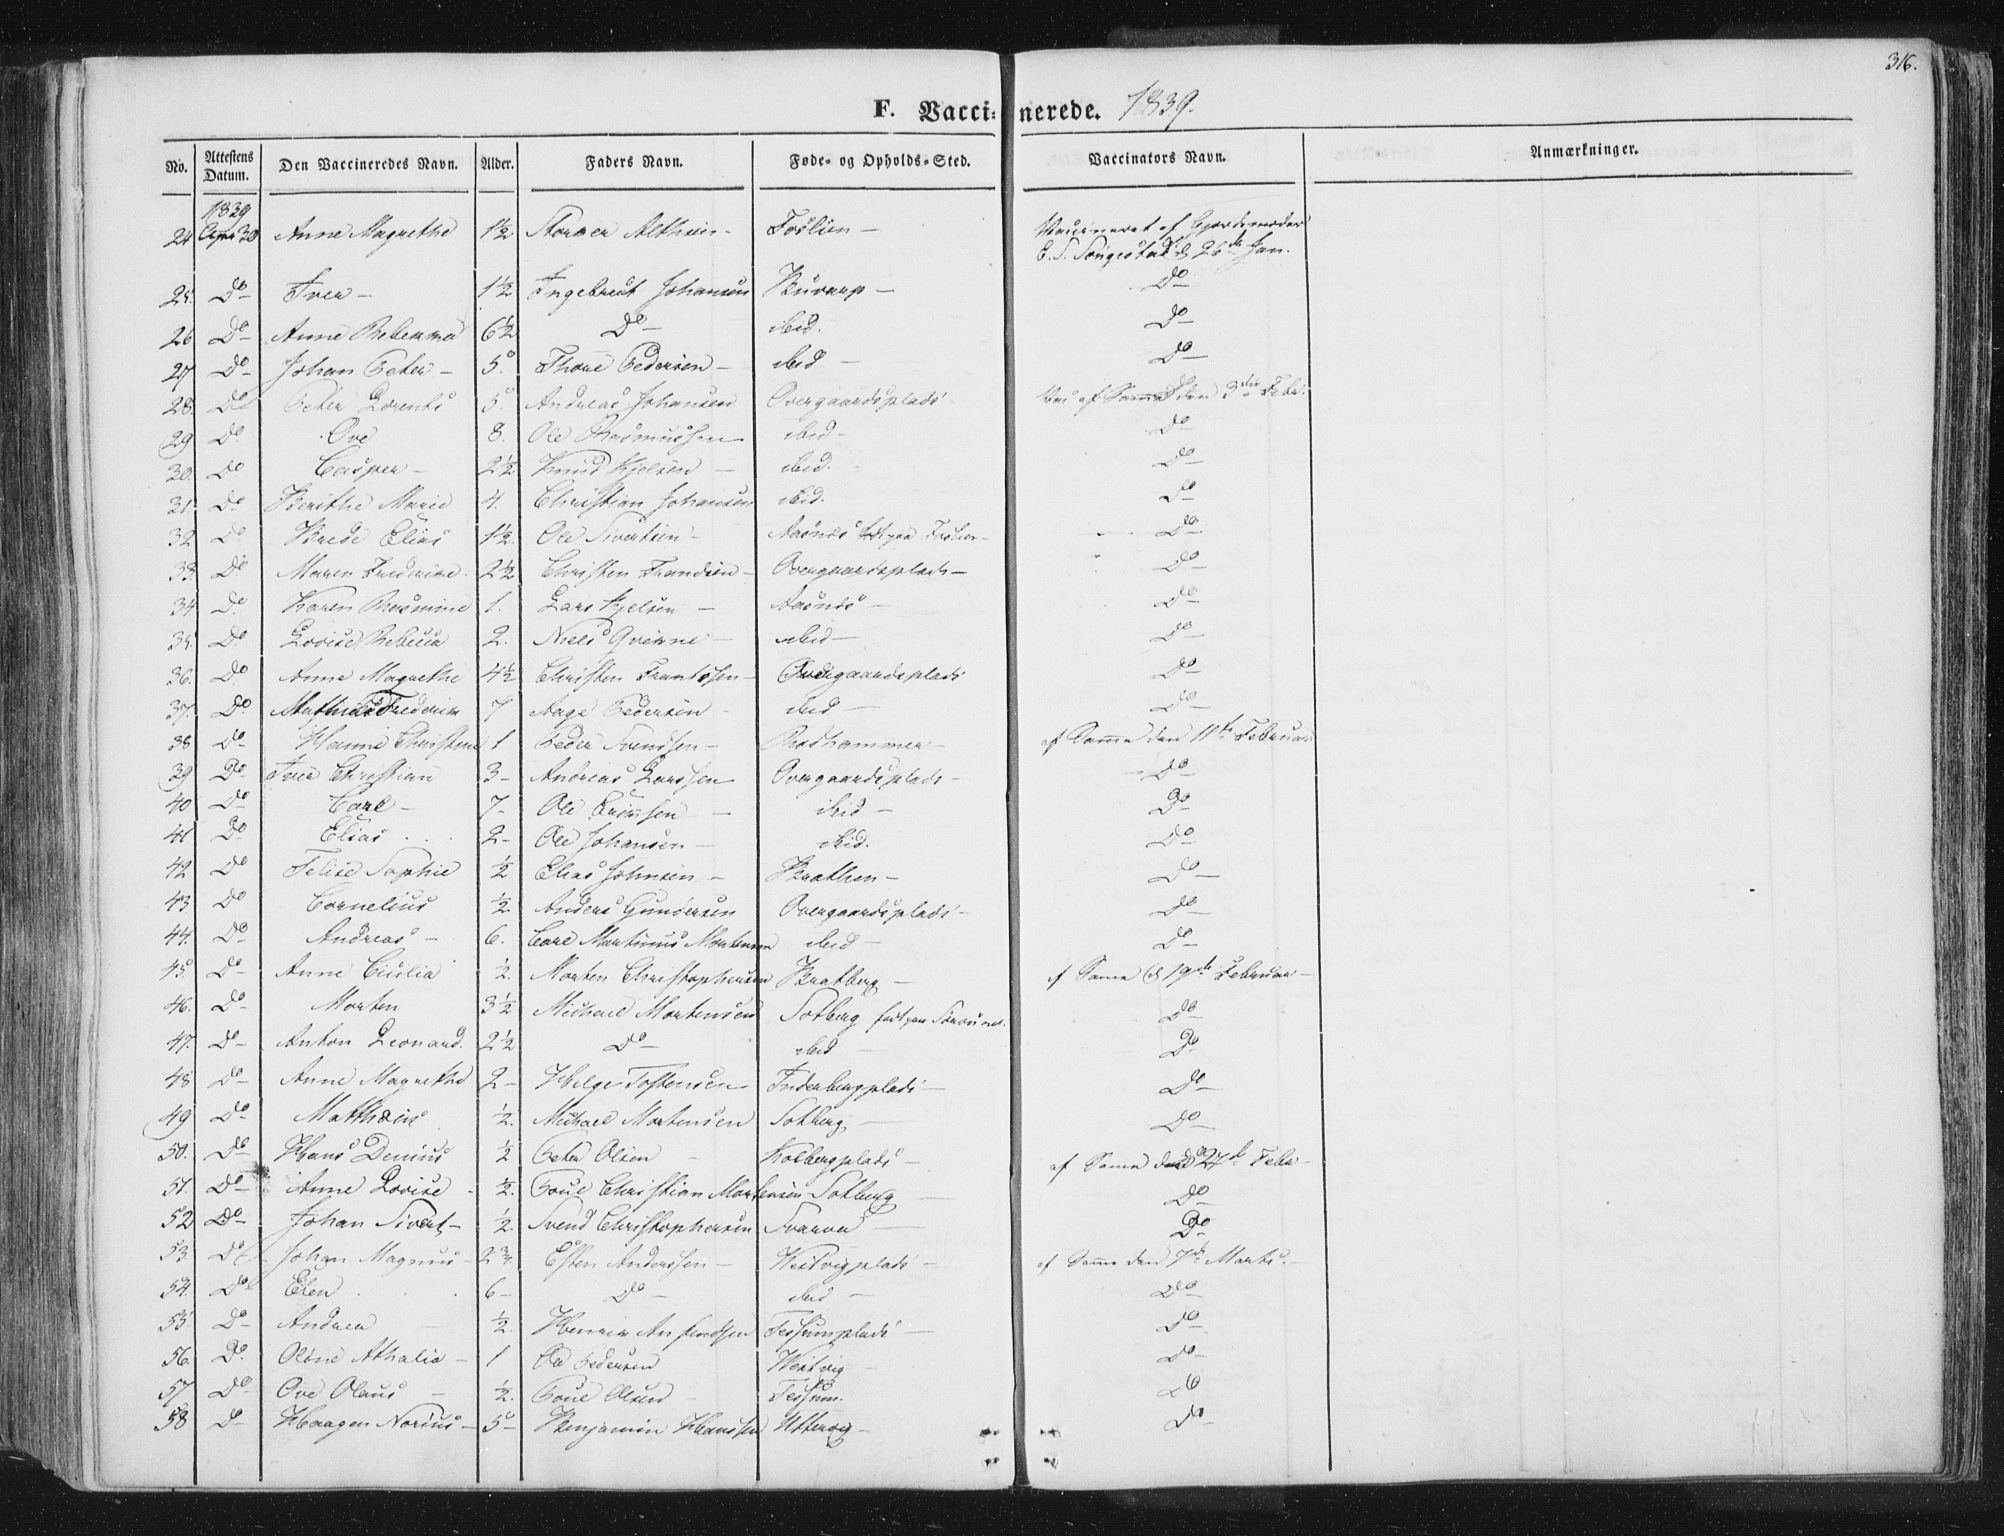 316.
F. Vaccinerede. 1839.
No. Attestens Datum. Den Vaccineredes Navn. Alder. Faders Navn. Føde- og Opholds-Sted. Vaccinators Navn. Anmærkninger.
1839
24 Apr 30 Anne Magrethe 1½ Foslien — Vaccineret af Gjordemoder
E. S. d 26de Jan.
25. Do Iver — 1½ Ingebrect Johansen — Do
26 Do Anne Rebekka 6½ Do ibid. Do
27 Do Johan Peter — 5. Thore Pedersen — ibid — Do
28. Do Peter Lorents 5. Andreas Johansen Overgaardsplads af Samme den 3die Febr.
29 Do Ove 8. Ole Rasmussen ibid — Do
30. Do Casper — 2½ Knud Kjelsen — ibid. Do
31 Do Berithe Marie 4. Christian Johansen ibid. Do
32 Do Brede Elias 1½ Ole Sivertsen Aasnes født paa Foslien — Do
33. Do Maren Frederine 2½ Christen Frandsen — Overgaardsplads — Do
34 Do Karen Rasmine 1. Lars Kjelsen — Aasnes — Do
35. Do Lovise Rebecca 2. Niels — ibid — Do
36. Do Anne Magrethe 4½ Christen Frantssen — Overgaardsplads Do
37. Do Mathias Frederik 7 Aage Pedersen ibid — Do
38 Do Hanne Christine 1 Peder Svendsen — Rødhammer — af Samme den 11te Februar
39 Do Iver Christian 3 — Andreas Larssen Overgaardsplads — Do
40 Do Carl — 7 — Ole — ibid — Do
41 Do Elias 2 — Ole Johansen — ibid. Do
42 Do Felise Sophie ½ Elias Johnsen — Brathen — Do
43 Do Cornelius ½ Anders Gundersen Overgaardsplads — Do
44. Do Andreas — 6. Carl Martinus Mortensen ibid — Do
45. Do Anne Cicilia ½. Morten Christophersen Bratberg — af Samme d 19de Februar —
46. Do Morten 3½ Michael Mortensen Solberg født paa Do
47. Do Anton Leonard. 2½ Do ibid — Do
48 Do Anne Magrethe 2 — Helge Tostensen Inderbergplads — Do
49 Do Mathæus ½. Michael Mortensen Solberg — Do
50. Do Hans Denius ½ Peter Olsen Kolbergplads — af Samme den 27de Febr —
51. Do Anne Lovise ½. Poul Christian Mortensen Solberg — Do
52 Do Johan Sivert — ½. Svend Christophersen Svarva — Do
53. Do Johan Magnus — 2¾ Esten Anderssen — Westvigplads — af Samme den 7de Marts. —
54. Do Elen 6 — Do ibid — Do
55. Do Andrea ½. Henrik Tessumplads — Do
56. Do Oline Athalia — 1 Ole Pedersen Westvig — Do
57 Do Ove Olaus — ½. Poul Olsen Tessum. Do
58 Do Haagen Norius — 5 — Benjamin Hanssen Uttervig — Do